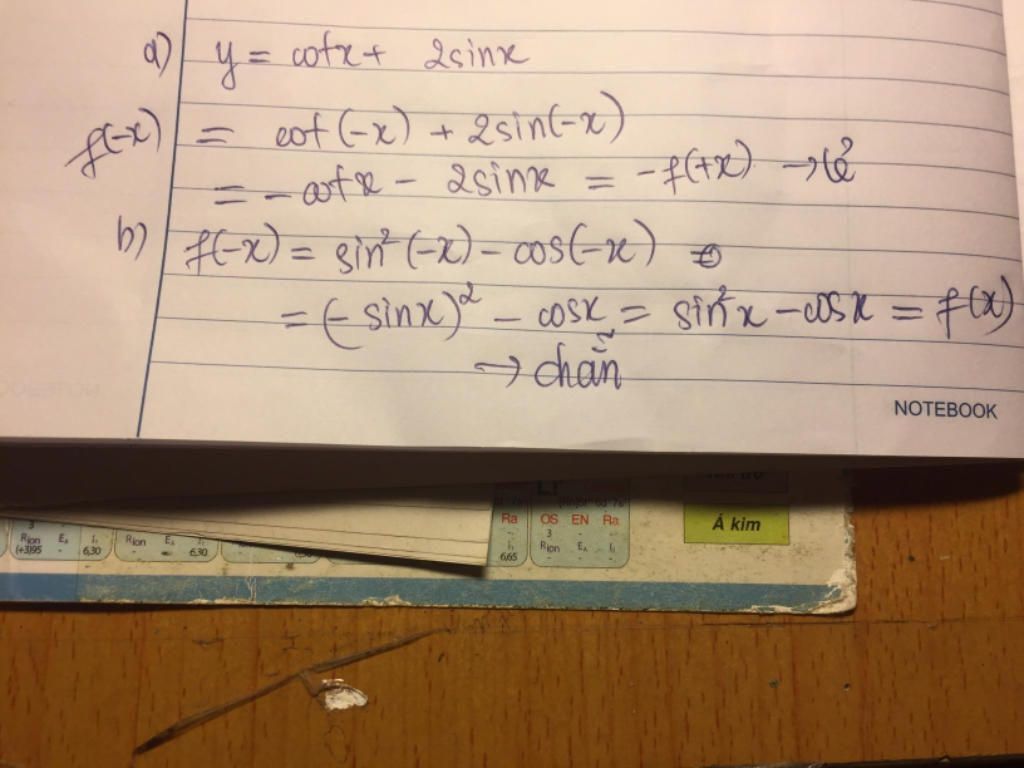 a) y = cotx + 2sinx
f(-x) = cot(-x) + 2sin(-x)
= - cotx - 2sinx = -f(+x) → lẻ
b) f(-x) = sin²(-x) - cos(-x)
= (- sinx)² - cosx = sin²x - cosx = f(x)
→ chẵn
NOTEBOOK
Ra OS EN Ra
Á kim
3 3 - -
Rion EA I₁ Rion EA I₁ I₁ Rion EA I₁
(+3)95 - 6,30 - - 6,30 6,65 - - -